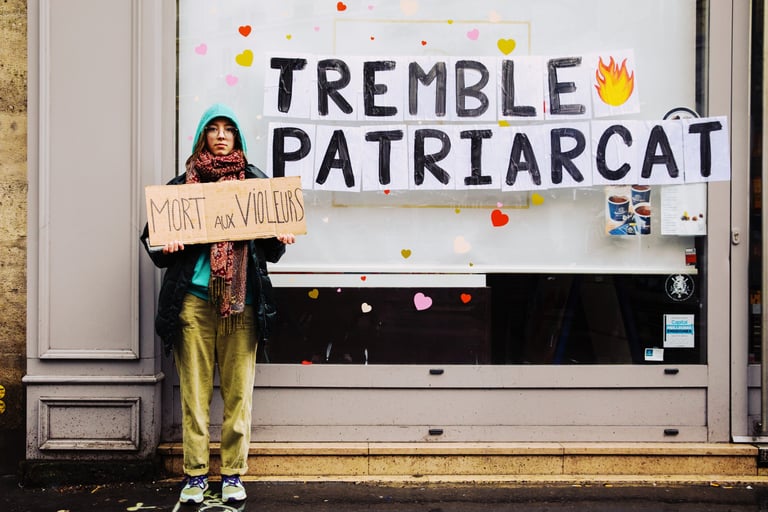 TREMBLE
PATRIARCAT
MORT AUX VIOLEURS